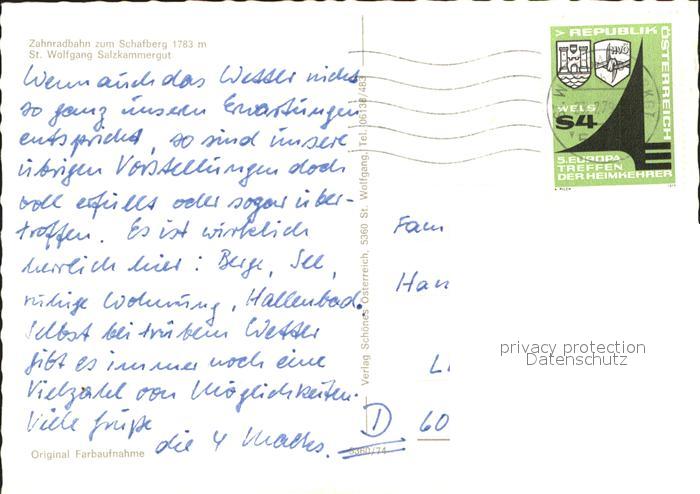 Zahnradbahn zum Schafberg 1783 m
St. Wolfgang Salzkammergut
Wenn auch das Wetter nicht
so ganz unseren Erwartungen
entspricht, so sind unsere
übrigen Vorstellungen doch
voll erfüllt oder sogar über-
troffen. Es ist wirklich
herrlich hier: Berge, See,
ruhige Wohnung, Hallenbad.
Selbst bei trübem Wetter
gibt es immer noch eine
Vielzahl von Möglichkeiten.
Viele Grüße
die 4
Original Farbaufnahme
Verlag Schönes Österreich, 5360 St. Wolfgang, Tel. (06138/483
5360/74
> REPUBLIK
ÖSTERREICH
WELS
S4
5. EUROPA
TREFFEN
DER HEIMKEHRER
Fam
Han
LI
D 60
privacy protection
Datenschutz